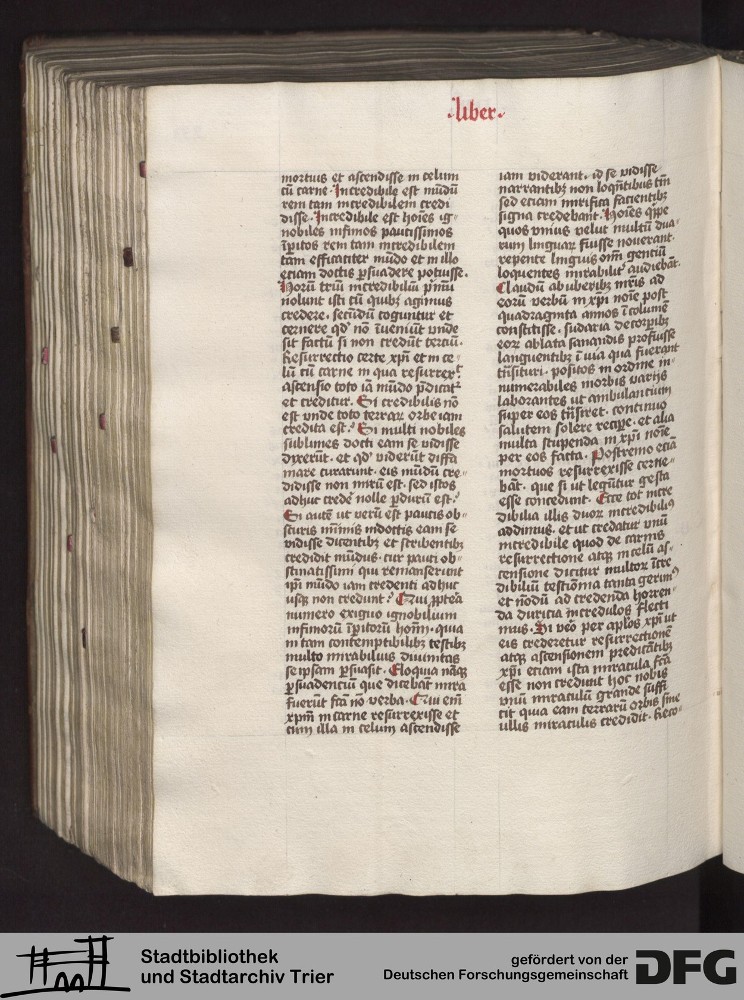 ·liber·
mortuis et ascendisse in celum
cū carne · Incredibile est mūdū
rem tam incredibilem credi
disse · Incredibile est hoīes ig-
nobiles infimos paucissimos
īp̄itos rem tam incredibilem
tam efficaciter mūdo et in illo
etiam doctis ꝑsuadere potuisse ·
Horū triū incredibiliū p̄mū
nolunt isti cū quibꝫ agimus
credere · secūdū coguntur et
cernere qd' nō īueniūt vnde
sit factū si non credūt terciū ·
Resurrectio certe xp̄i et in ce-
lū cū carne in qua resurrex͛
ascensio toto iā mūdo p̄dicat͛
et creditur · Si credibilis nō
est vnde toto terraꝝ orbe iam
credita est · Si multi nobiles
sublimes docti eam se vidisse
dyxerūt · et qd' viderūt diffa
mare curarunt · eis mūdū cre-
didisse non mirū est · sed istos
adhuc crede͛ nolle ꝑdurū est ·
Si autē ut verū est paucis ob-
scuris mīmis indoctis eam se
vidisse dicentibꝫ et scribentibꝫ
credidit mūdus · cur pauci ob-
stinatissimi qui remanserunt
ipī mūdo iam credenti adhuc
usqꝫ non credunt · Qui ꝓpterea
numero exiguo ignobilium
infimorū īp̄itorū hoīm · quia
in tam contemptibilibꝫ testibꝫ
multo mirabilius diuinitas
se ipsam ꝑsuasit · Eloquia nāqꝫ
ꝑsuadenciū que dicebāt mira
fuerūt fcā nō verba · Qui em̄
xpm̄ in carne resurrexisse et
cum illa in celum ascendisse
iam viderant · id se vidisse
narrantibꝫ non loquētibus tm̄
sed etiam mirifica facientibꝫ
signa credebant · Hoīes quippe
quos vnius velut multū dua-
rum linguaꝝ fuisse nouerant
repente linguis omī gentiū
loquentes mirabilit͛ audiebāt ·
Claudū ab uberibꝫ mr̄is ad
eorū verbū in xpī noīe post
quadraginta annos īcolumē
constitisse · sudaria de corpibꝫ
eoꝝ ablata sanandis profuisse
languentibꝫ ī uia qua fuerant
trāsituri · positos in ordine in-
numerabiles morbis varijs
laborantes ut ambulancium
super eos trāsiret · continuo
salutem solere recipe · et alia
multa stupenda in xpī noīe
per eos facta · Postremo eciā
mortuos resurrexisse cerne-
bāt · que si ut legūtur gesta
esse concedunt · Ecce tot incre
dibilia illis duoꝝ incredibiliꝰ
addimus · et ut credatur vnū
incredibile quod de carnis
resurrectione atqꝫ in celū as-
censione dicitur multoꝝ īcre
dibiliū testīonia tanta gerimꝰ
et nōdū ad credenda horren-
da duricia incredulos flecti
mus · Si vēo per aplōs xpī ut
eis crederetur resurrectionē
atqꝫ ascensionem predicātibꝫ
xpī etiam ista miracula fcā
esse non credunt hoc nobis
vnū miraculū grande suffi
cit quia eam terrarū orbis sine
ullis miraculis credidit · Reco-
Stadtbibliothek
und Stadtarchiv Trier
gefördert von der
Deutschen Forschungsgemeinschaft
DFG